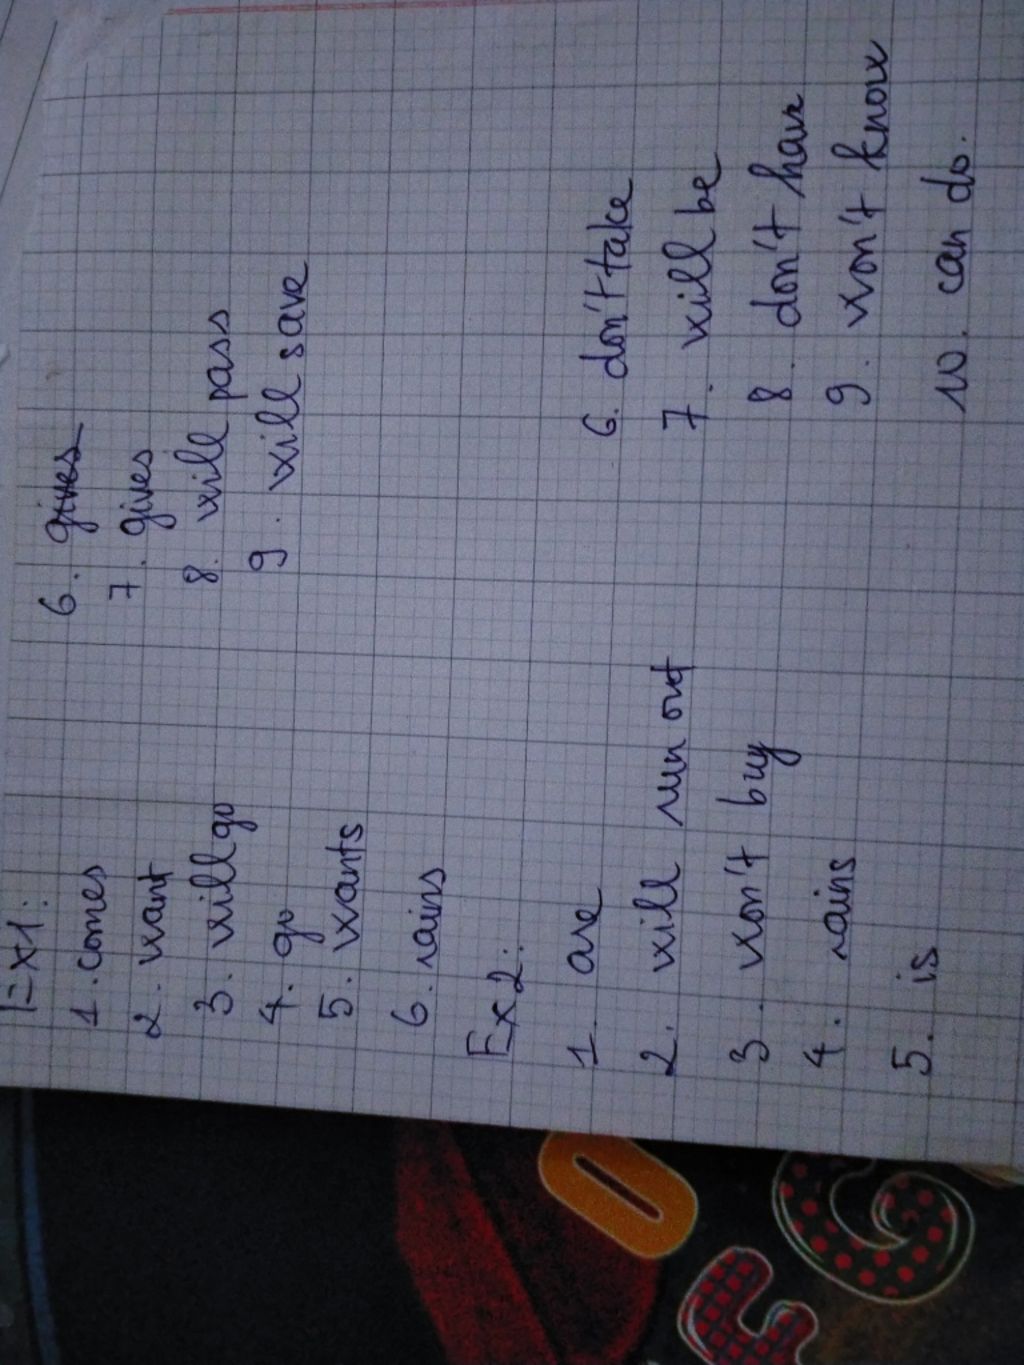 Ex1:
1. comes
2. want
3. will go
4. go
5. wants
6. rains
6. gives
7. gives
8. will pass
9. will save
Ex2:
1. are
2. will run out
3. won't buy
4. rains
5. is
6. don't take
7. will be
8. don't have
9. won't know
10. can do.
O
F
G